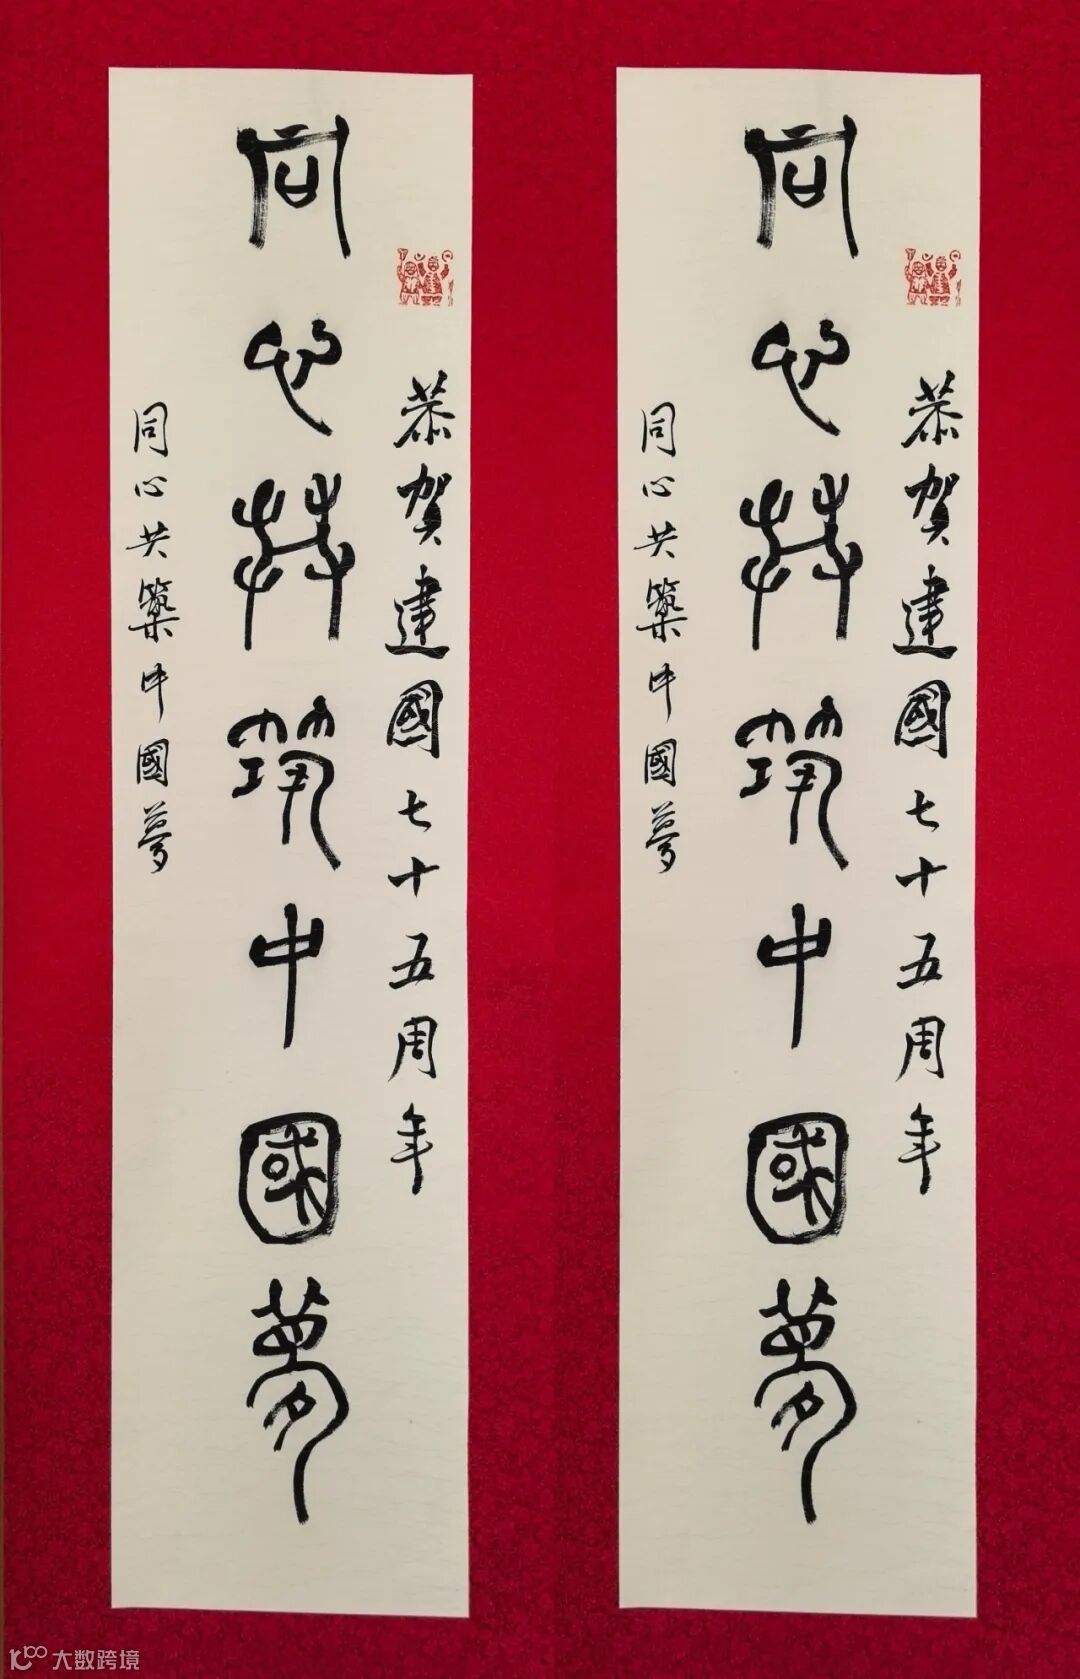 恭賀建國七十五周年
同心共筑中國夢
同心共築中國夢
恭賀建國七十五周年
同心共筑中國夢
同心共築中國夢
大数跨境